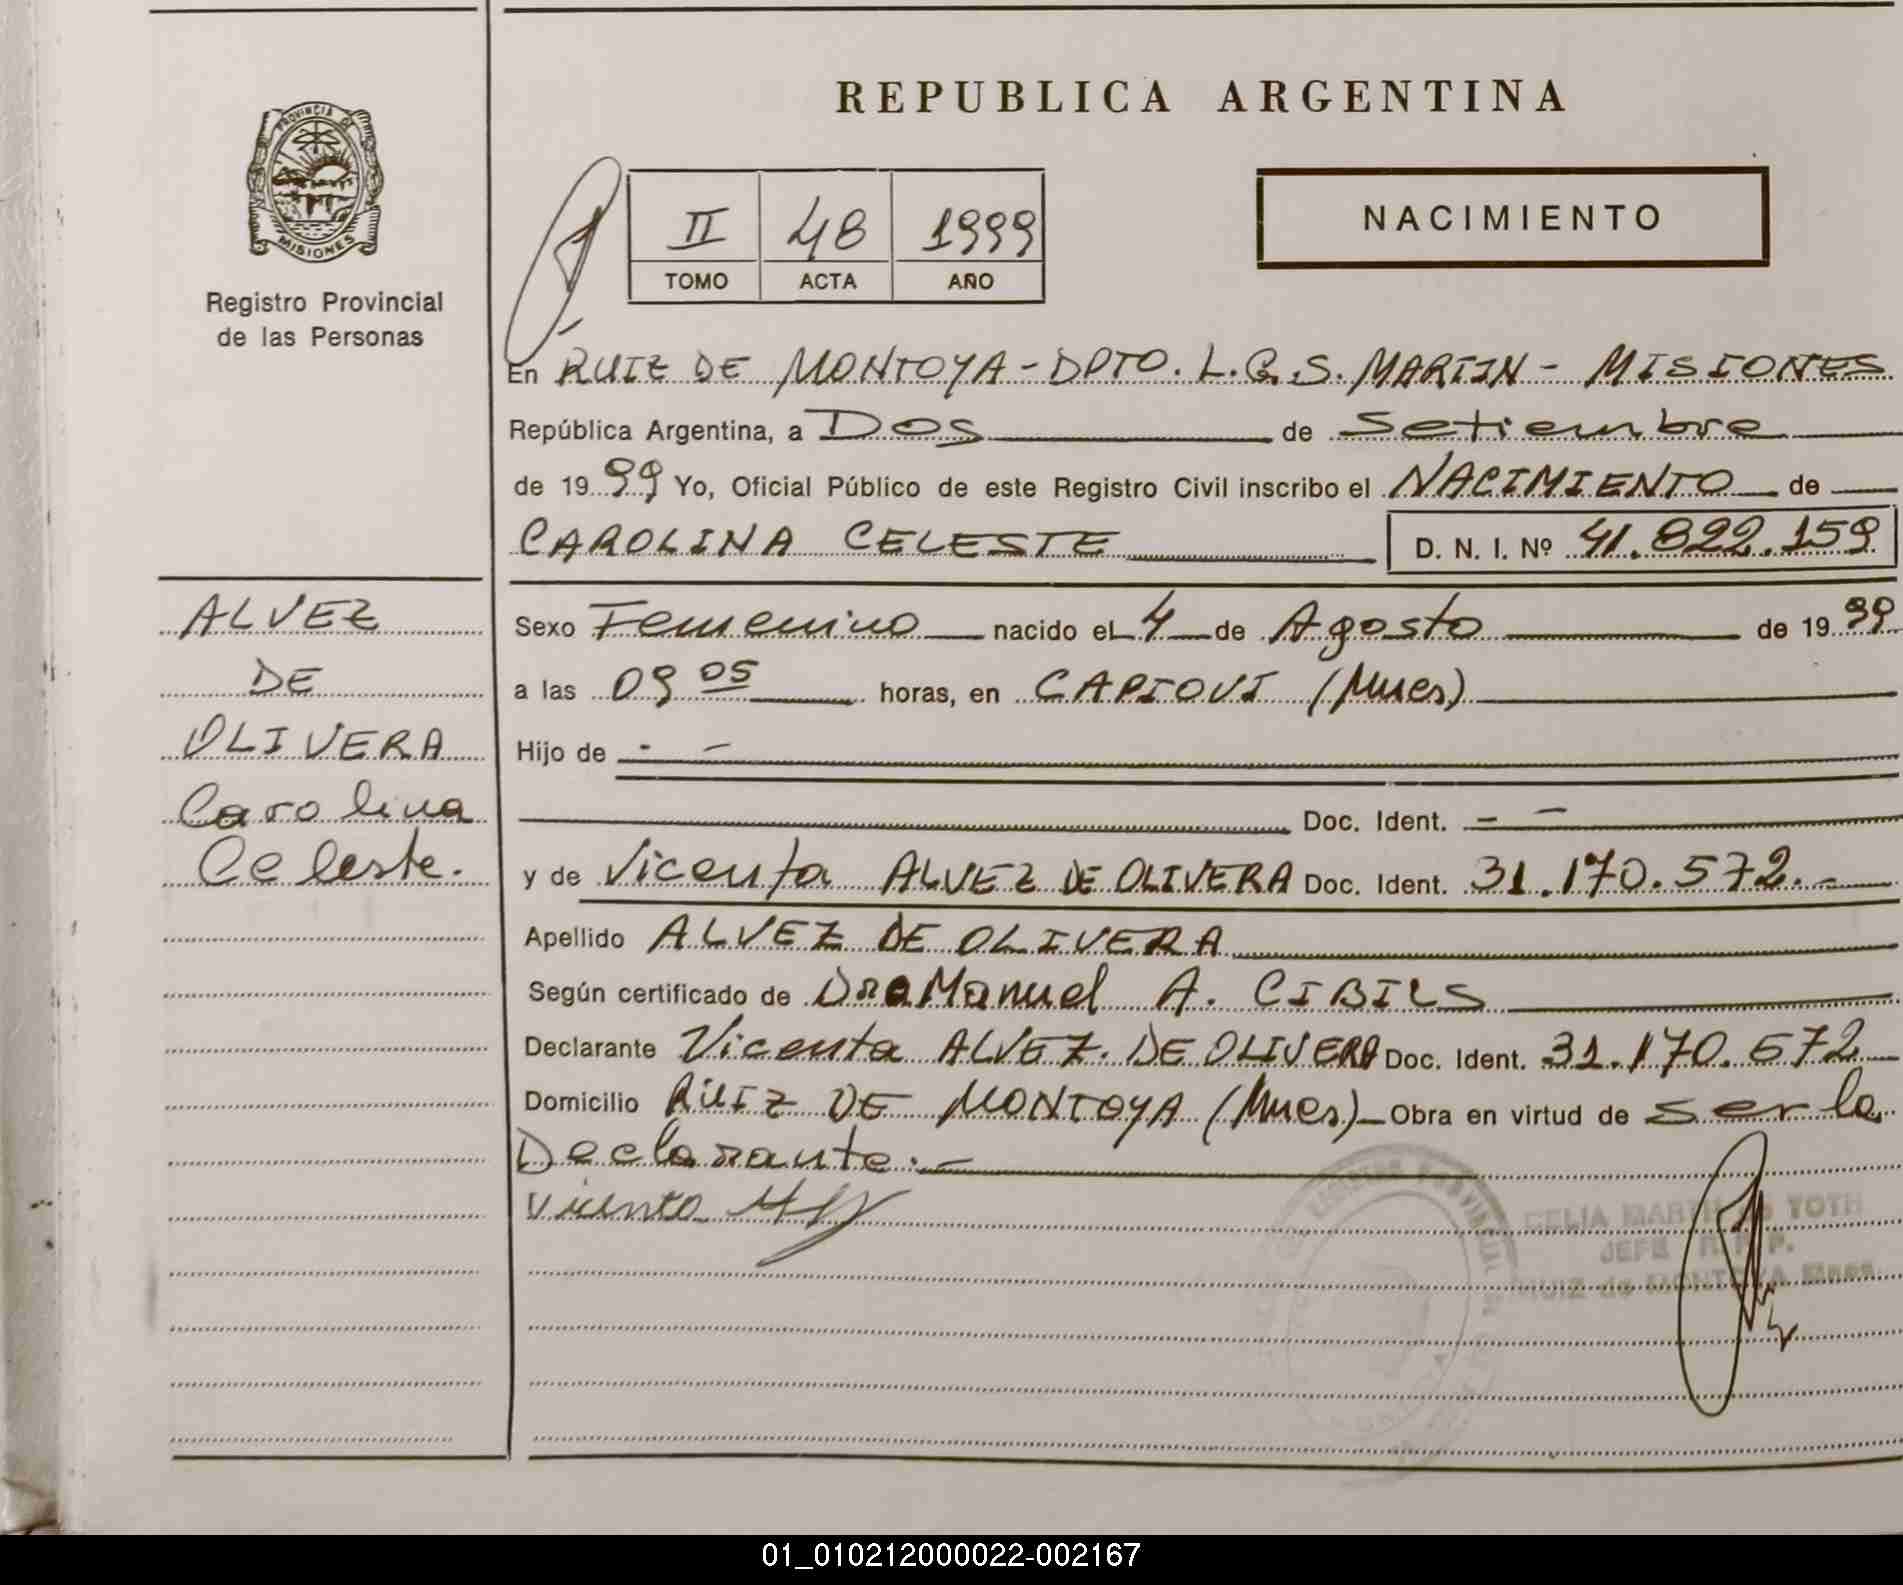 REPUBLICA ARGENTINA
PROVINCIA DE
MISIONES
Registro Provincial
de las Personas
II 48 1999
TOMO ACTA AÑO
NACIMIENTO
En RUIZ DE MONTOYA - DPTO. L.G.S. MARTIN - MISIONES
República Argentina, a Dos de Setiembre
de 1999 Yo, Oficial Público de este Registro Civil inscribo el NACIMIENTO de
CAROLINA CELESTE D. N. I. Nº 41.822.159
ALVEZ
DE
OLIVERA
Carolina
Celeste.
Sexo Femenino nacido el 4 de Agosto de 1999
a las 09 05 horas, en CAPIOVI (Mnes)
Hijo de - -
Doc. Ident. - -
y de Vicenta ALVEZ DE OLIVERA Doc. Ident. 31.170.572.-
Apellido ALVEZ DE OLIVERA
Según certificado de Dro Manuel A. CIBILS
Declarante Vicenta ALVEZ DE OLIVERA Doc. Ident. 31.170.572
Domicilio RUIZ DE MONTOYA (Mnes) - Obra en virtud de ser la
Declarante.-
Vicenta
TOTH
JEFE R.P.P.
RUIZ de MONTOYA Mnes.
01_010212000022-002167